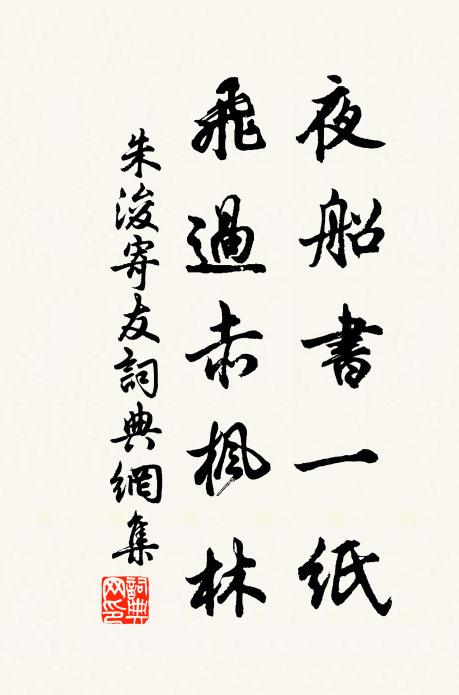 夜船書一紙
飛過赤楓林
朱浚寄友詞典網集
詞典网印